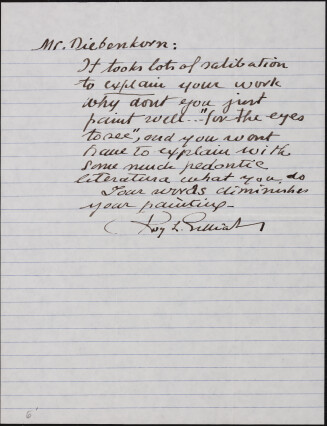 Mr. Diebenkorn:
It tooks lots of salibation
to explain your work
why dont you just
paint well..."for the eyes
to see", and you wont
have to explain with
some much pedontic
literatura what you do
Your words diminishes
your painting-
Roy L.
6